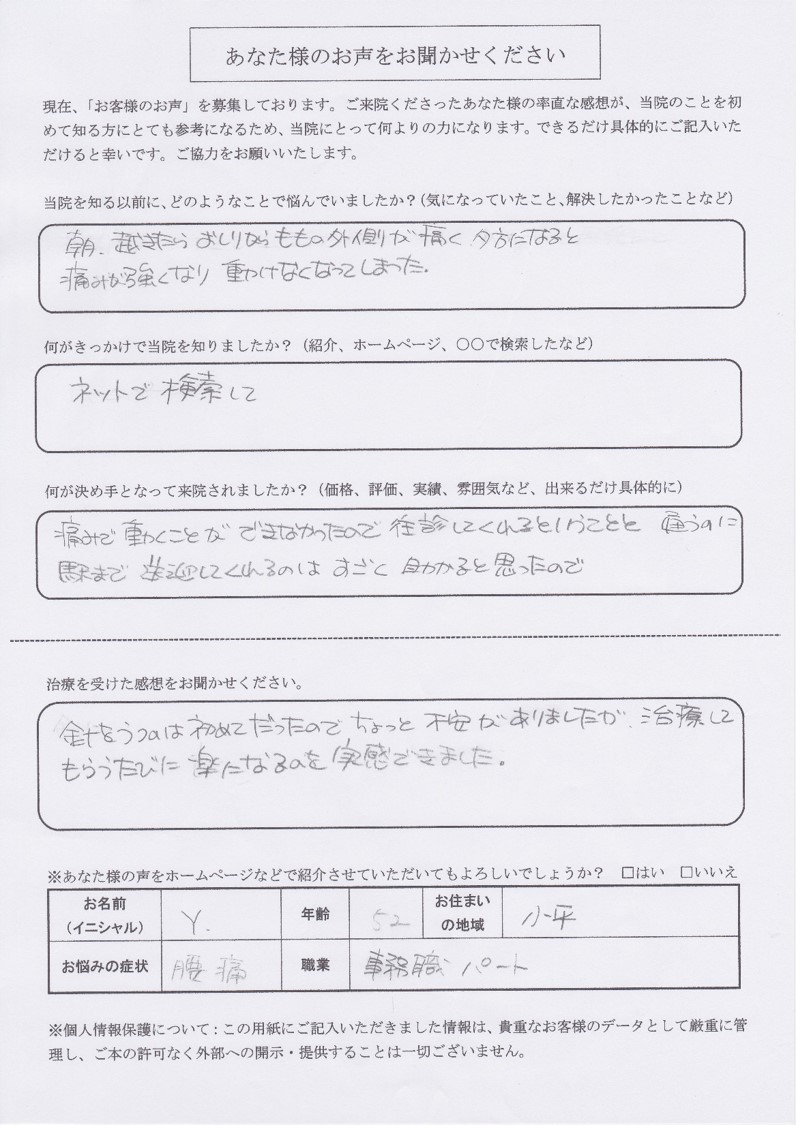 あなた様のお声をお聞かせください
現在、「お客様のお声」を募集しております。ご来院くださったあなた様の率直な感想が、当院のことを初
めて知る方にとても参考になるため、当院にとって何よりの力になります。できるだけ具体的にご記入いた
だけると幸いです。ご協力をお願いいたします。
当院を知る以前に、どのようなことで悩んでいましたか？（気になっていたこと、解決したかったことなど）
朝、起きたら おしりからももの外側が痛く 夕方になると
痛みが強くなり 動けなくなってしまった。
何がきっかけで当院を知りましたか？（紹介、ホームページ、〇〇で検索したなど）
ネットで 検索して
何が決め手となって来院されましたか？（価格、評価、実績、雰囲気など、出来るだけ具体的に）
痛みで 動くことが できなかったので 往診してくれるということと 通うのに
駅まで 送迎してくれるのは すごく 助かると思ったので
治療を受けた感想をお聞かせください。
針をうつのは 初めてだったので、ちょっと 不安がありましたが、治療して
もらうたびに 楽になるのを 実感できました。
※あなた様の声をホームページなどで紹介させていただいてもよろしいでしょうか？ □はい □いいえ
お名前（イニシャル） Y. 年齢 52 お住まいの地域 小平
お悩みの症状 腰痛 職業 事務職 パート
※個人情報保護について：この用紙にご記入いただきました情報は、貴重なお客様のデータとして厳重に管
理し、ご本の許可なく外部への開示・提供することは一切ございません。